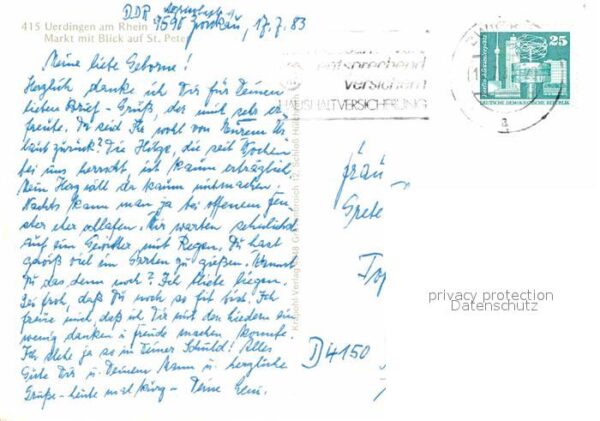 415 Uerdingen am Rhein
Markt mit Blick auf St. Pete
DDR
9590 Zwickau, 17.7.83
Meine liebe Geborne!
Herzlich danke ich Dir für Deinen
lieben Brief-Gruß, der mich sehr er
freute. Da seid Ihr wohl von Eurem Ur
laub zurück? Die Hitze, die seit Wochen
bei uns herrscht, ist kaum erträglich.
Mein Herz will da kaum mitmachen.
Nachts kann man ja bei offenem Fen
ster eher schlafen. Wir warten sehnlichst
auf ein Gewitter mit Regen. Du hast
gewiß viel im Garten zu gießen. Kannst
Du das denn noch? Ich bliebe liegen.
Sei froh, daß Du noch so fit bist. Ich
freue mich, daß ich Dir mit den Liedern ein
wenig danken u. Freude machen konnte.
Ich stehe ja so in Deiner Schuld! Alles
Gute Dir u. Deinem Mann u. herzliche
Grüße - heute mal kurz - Deine
entsprechend
versichern
HAUSHALTVERSICHERUNG
25
DEUTSCHE DEMOKRATISCHE REPUBLIK
a
Frau
Grete
D 4150
privacy protection
Datenschutz